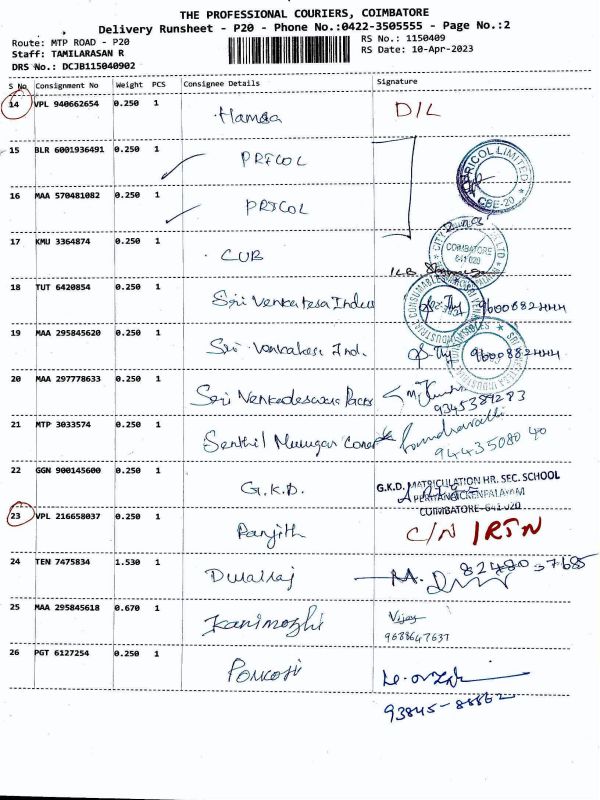 THE PROFESSIONAL COURIERS, COIMBATORE
Delivery Runsheet - P20 - Phone No.:0422-3505555 - Page No.:2
Route: MTP ROAD - P20
RS No.: 1150409
Staff: TAMILARASAN R
RS Date: 10-Apr-2023
DRS No.: DCJB115040902
S No. Consignment No Weight PCS Consignee Details Signature
14 VPL 940662654 0.250 1 Hamsa D/L
15 BLR 6001936491 0.250 1 PRICOL PRICOL LIMITED CBE-20
16 MAA 570481082 0.250 1 PRICOL
17 KMU 3364874 0.250 1 CUB COIMBATORE 641 020
18 TUT 6420854 0.250 1 Sri Venkatesa Indus
19 MAA 295845620 0.250 1 Sri Venkatesa Ind.
20 MAA 297778633 0.250 1 Sri Venkadeswara Packs 9345389283
21 MTP 3033574 0.250 1 Senthil Murugan 9443508040
22 GGN 900145600 0.250 1 G.K.D. G.K.D. MATRICULATION HR. SEC. SCHOOL
PERIYANAICKENPALAYAM
COIMBATORE-641 020
23 VPL 216658037 0.250 1 Ranjith C/N /RTN
24 TEN 7475834 1.530 1 Dwalraj M. 82480-37685
25 MAA 295845618 0.670 1 Kanimozhi Vijay
9688647637
26 PGT 6127254 0.250 1 Ponkodi
93845-88862